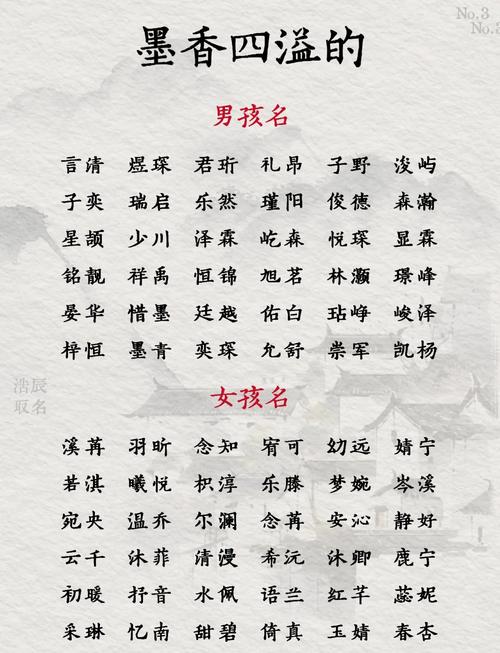 No.3
No.3
墨香四溢的
男孩名
言清 煜琛 君珩 礼昂 子野 浚屿
子奕 瑞启 乐然 瑾阳 俊德 森瀚
星颉 少川 泽霖 屹森 悦琛 显霖
铭靓 祥禹 恒锦 旭茗 林灏 璟峰
晏华 惜墨 廷越 佑白 玷峥 峻泽
梓恒 墨青 奕琛 允舒 崇军 凯杨
浩辰
取名
女孩名
溪苒 羽昕 念知 宥可 幼远 婧宁
若淇 曦悦 枳淳 乐滕 梦婉 岑溪
宛央 温乔 尔澜 念苒 安沁 静好
云千 沐菲 清漫 希沅 沐卿 鹿宁
初暖 抒音 水佩 语兰 红芊 蕊妮
采琳 忆南 甜碧 倚真 玉婧 春杏